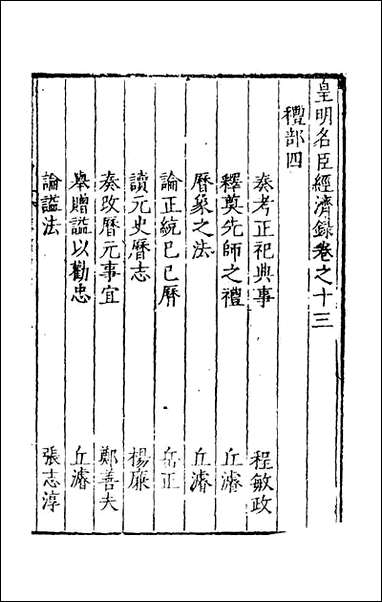 皇明名臣經濟錄卷之十三
禮部四
奏考正祀典事 程敏政
釋奠先師之禮 丘濬
曆象之法 丘濬
論正統己巳曆 岳正
讀元史曆志 楊廉
奏改曆元事宜 鄭善夫
舉贈謚以勸忠 丘濬
論謚法 張志淳